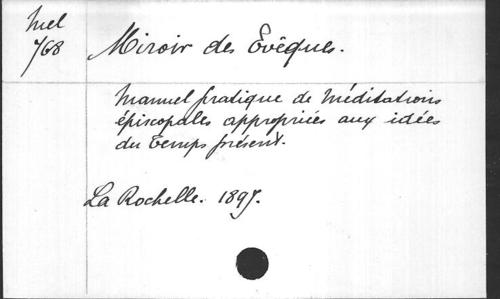 Mel
768
Miroir des Evêques.
Manuel pratique de méditations
épiscopales appropriées aux idées
du temps présent.
La Rochelle. 1897.